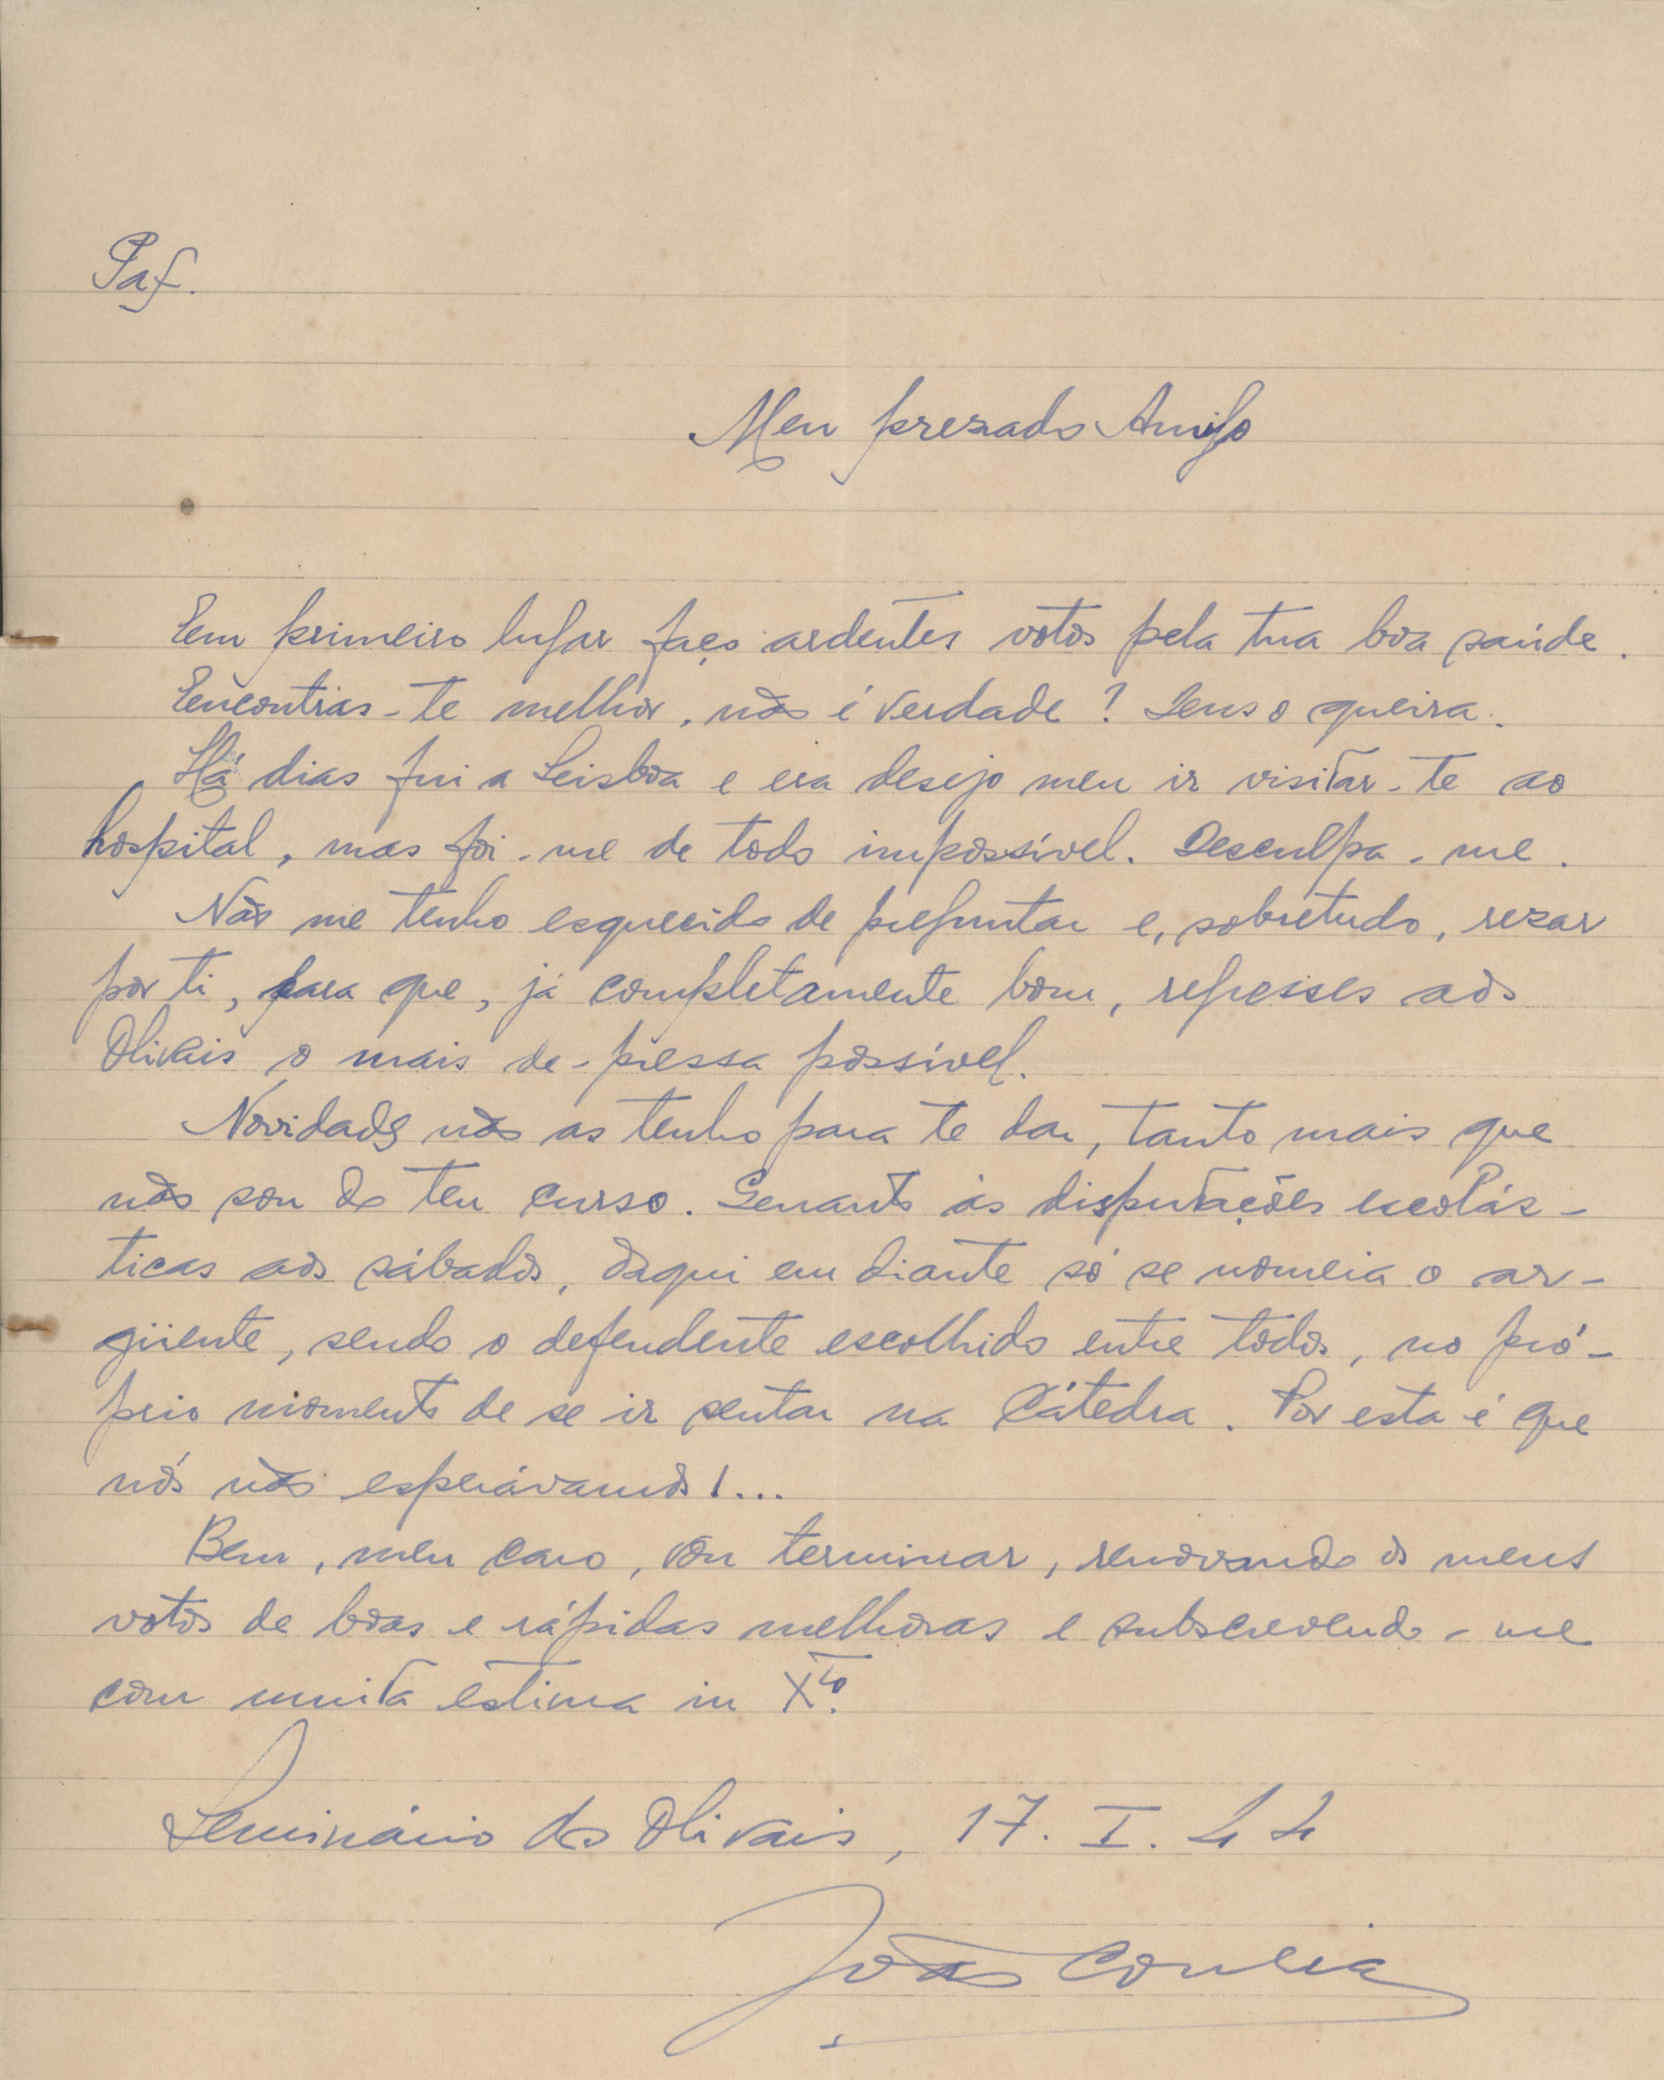 Pax.
Meu prezado Amigo
Em primeiro lugar faço ardentes votos pela tua boa saúde.
Encontras-te melhor, não é verdade? Deus o queira.
Há dias fui a Leisboa e era desejo meu ir visitar-te ao
hospital, mas foi-me de todo impossível. Desculpa-me.
Não me tenho esquecido de preguntar e, sobretudo, rezar
por ti, para que, já completamente bom, regresses aos
Olivais o mais de-pressa possível.
Novidades não as tenho para te dar, tanto mais que
não sou do teu curso. Quanto às disputações escolás-
ticas aos sábados, daqui em diante só se nomeia o ar-
güente, sendo o defendente escolhido entre todos, no pró-
prio momento de se ir sentar na Cátedra. Por esta é que
nós não esperávamos!...
Bem, meu caro, vou terminar, renovando os meus
votos de boas e rápidas melhoras e subscrevendo-me
com muita estima in Xto.
Seminário dos Olivais, 17. I. 44
João Correia